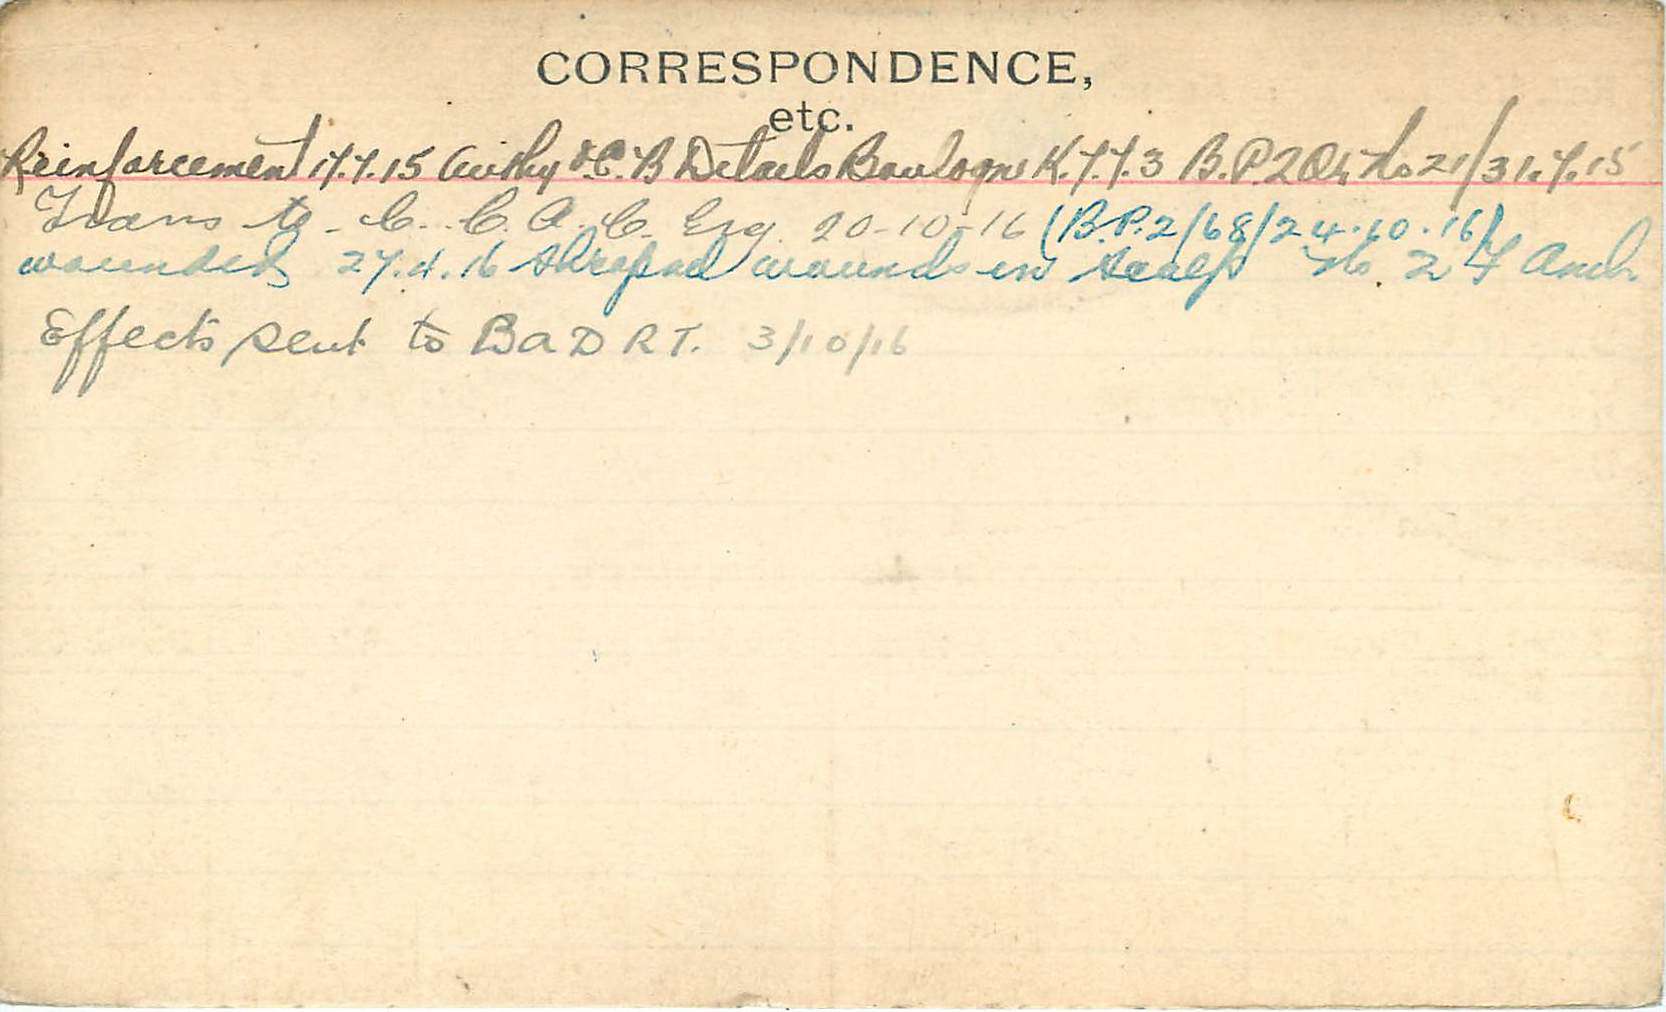 CORRESPONDENCE,
etc.
Reinforcement 17.7.15 Authy O.C. B Details Boulogne K.7.7.3 B.P.2 No 21/31.7.15
Trans to - C. C. A. C. Eng. 20-10-16 (B.P.2/68/24.10.16)
wounded 27.4.16 Shrapnel wounds in Scalp No 2 F Amb.
Effects sent to BaDRT. 3/10/16